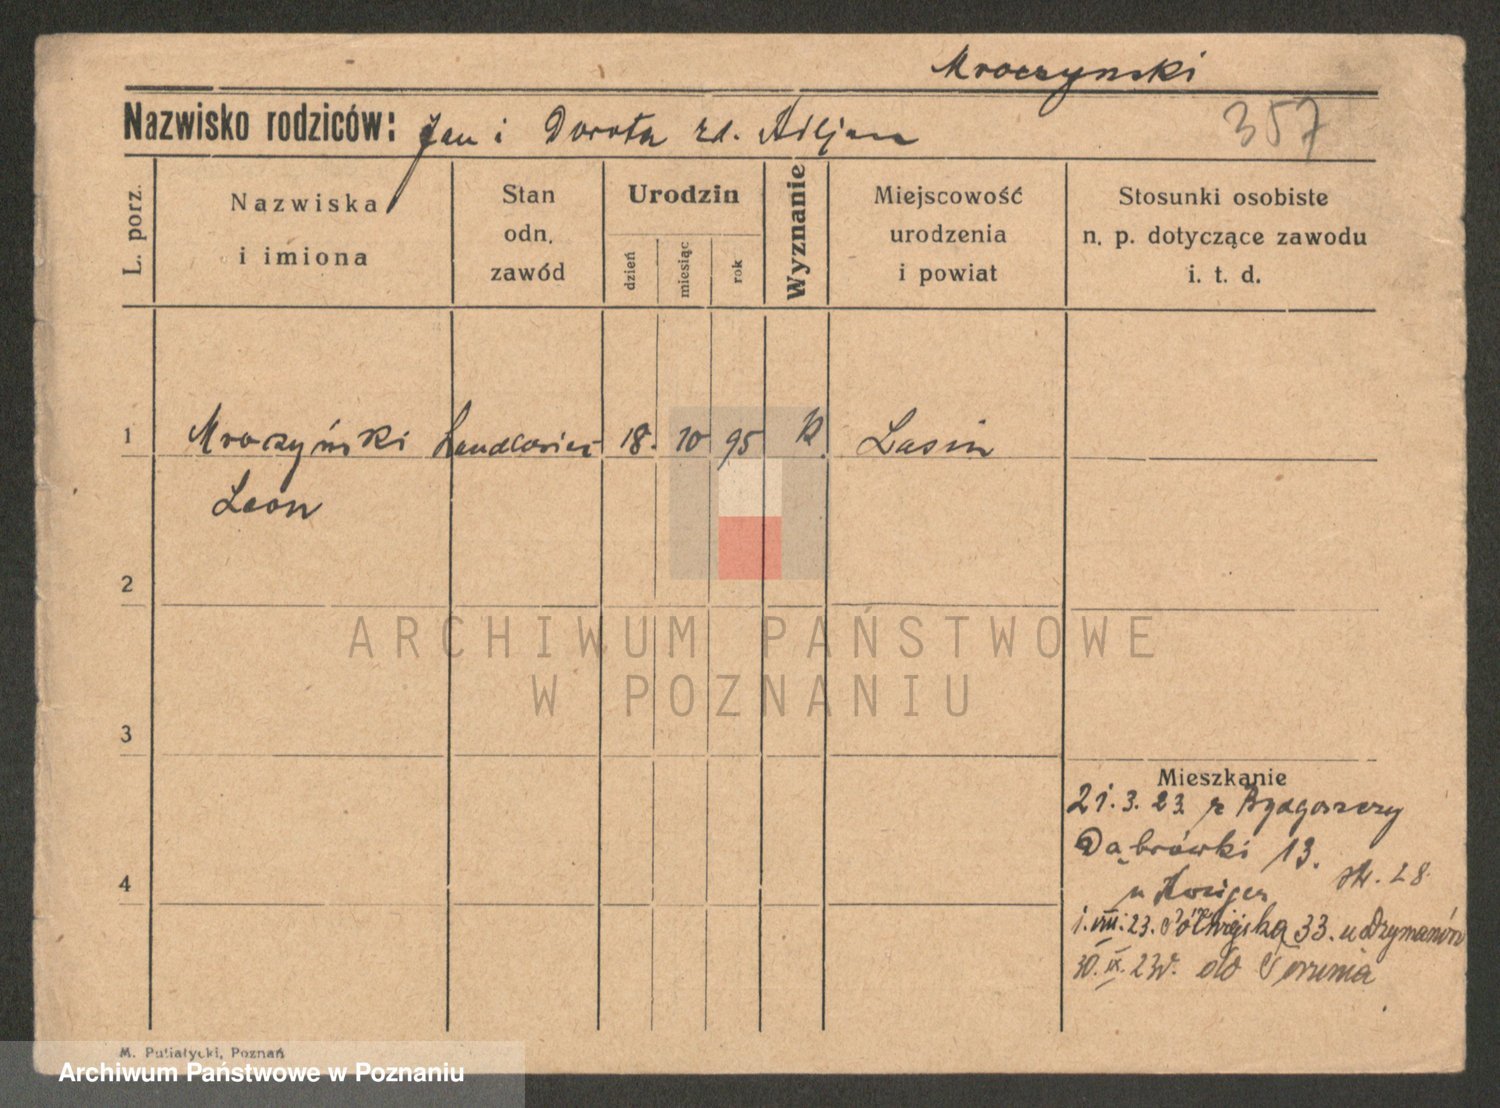 Mroczynski
Nazwisko rodziców: Jan i Dorota zd.
357
L. porz.
Nazwiska
i imiona
Stan
odn.
zawód
Urodzin
dzień
miesiąc
rok
Wyznanie
Miejscowość
urodzenia
i powiat
Stosunki osobiste
n. p. dotyczące zawodu
i. t. d.
1 Mroczyński handlowiec 18. 10 95 k. Lasin
Leon
2
3
4
Mieszkanie
21.3.23 z Bydgoszczy
Dąbrówki 13.
u
28.
1.VIII.23. Półwiejska 33. u
30.IX.23r. do Torunia
ARCHIWUM PAŃSTWOWE
W POZNANIU
M. Putiatycki, Poznań
Archiwum Państwowe w Poznaniu